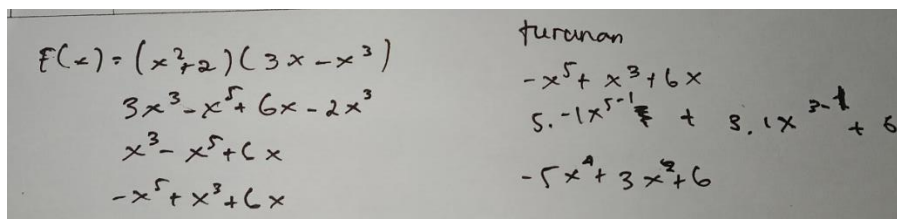 F(x) = (x²+2)(3x - x³)
3x³ - x⁵ + 6x - 2x³
x³ - x⁵ + 6x
-x⁵ + x³ + 6x
turunan
-x⁵ + x³ + 6x
5.-1x⁵⁻¹ + 3.1x³⁻¹ + 6
-5x⁴ + 3x² + 6